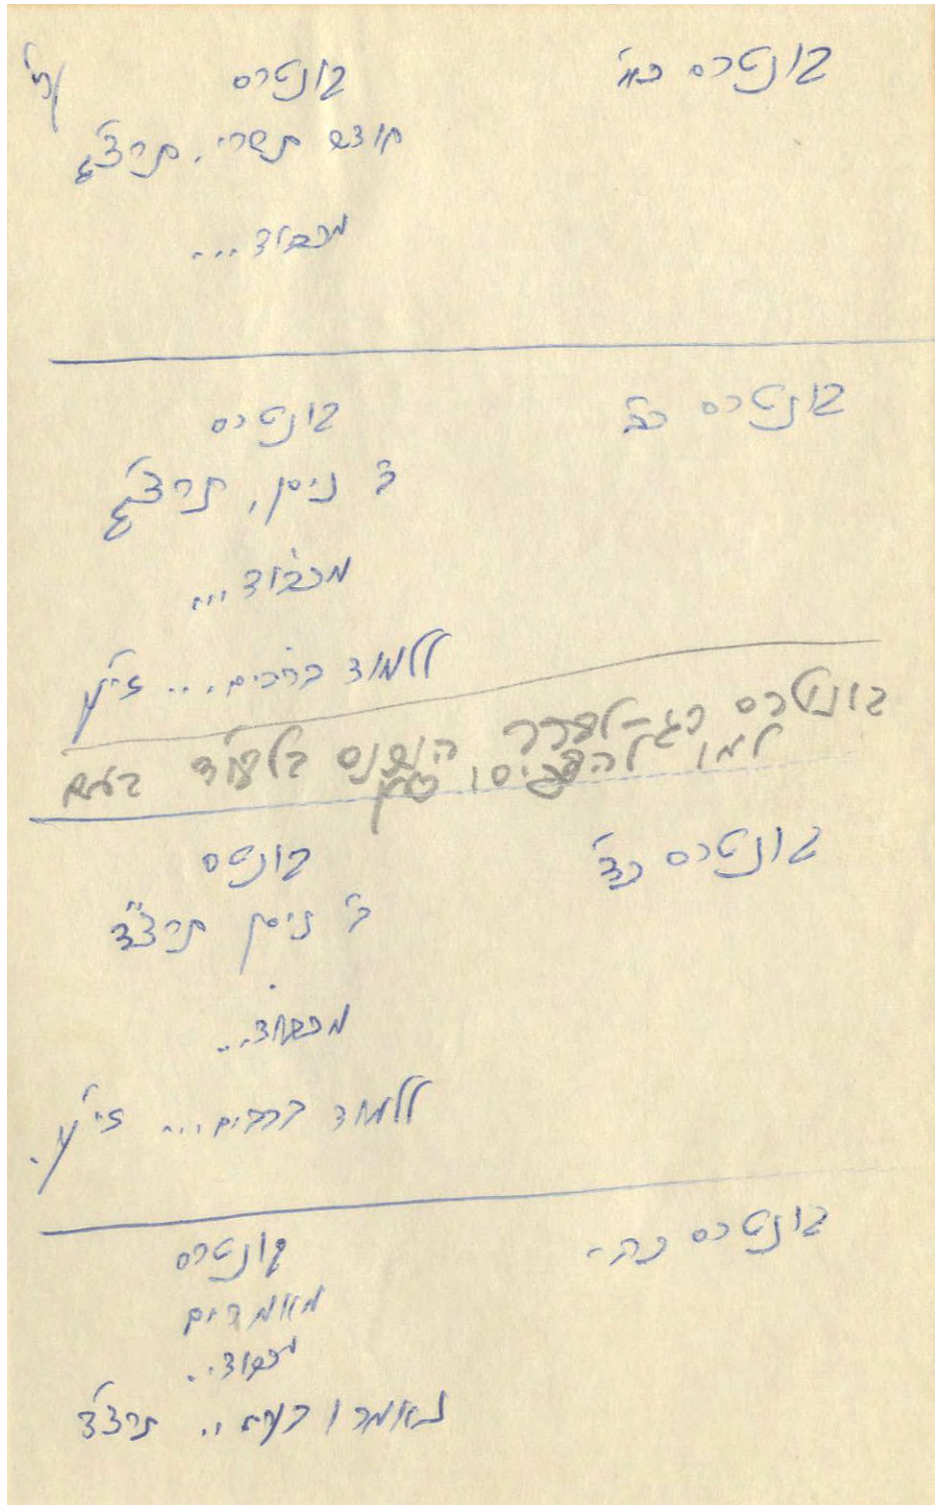 קונטרס כא'
קונטרס
חודש תשרי, תרצ"ג
מכבוד...
קונטרס כב'
קונטרס
ב' ניסן, תרצ"ג
מכבוד...
ללמוד ברבים... זי"ע
קונטרס כג-
קונטרס כד'
קונטס
ב' ניסן תרצ"ד
מכבוד...
ללמוד ברבים... זי"ע.
קונטרס כה-
קונטרס
מאמרים
מכבוד...
נאמרו תרצ"ד